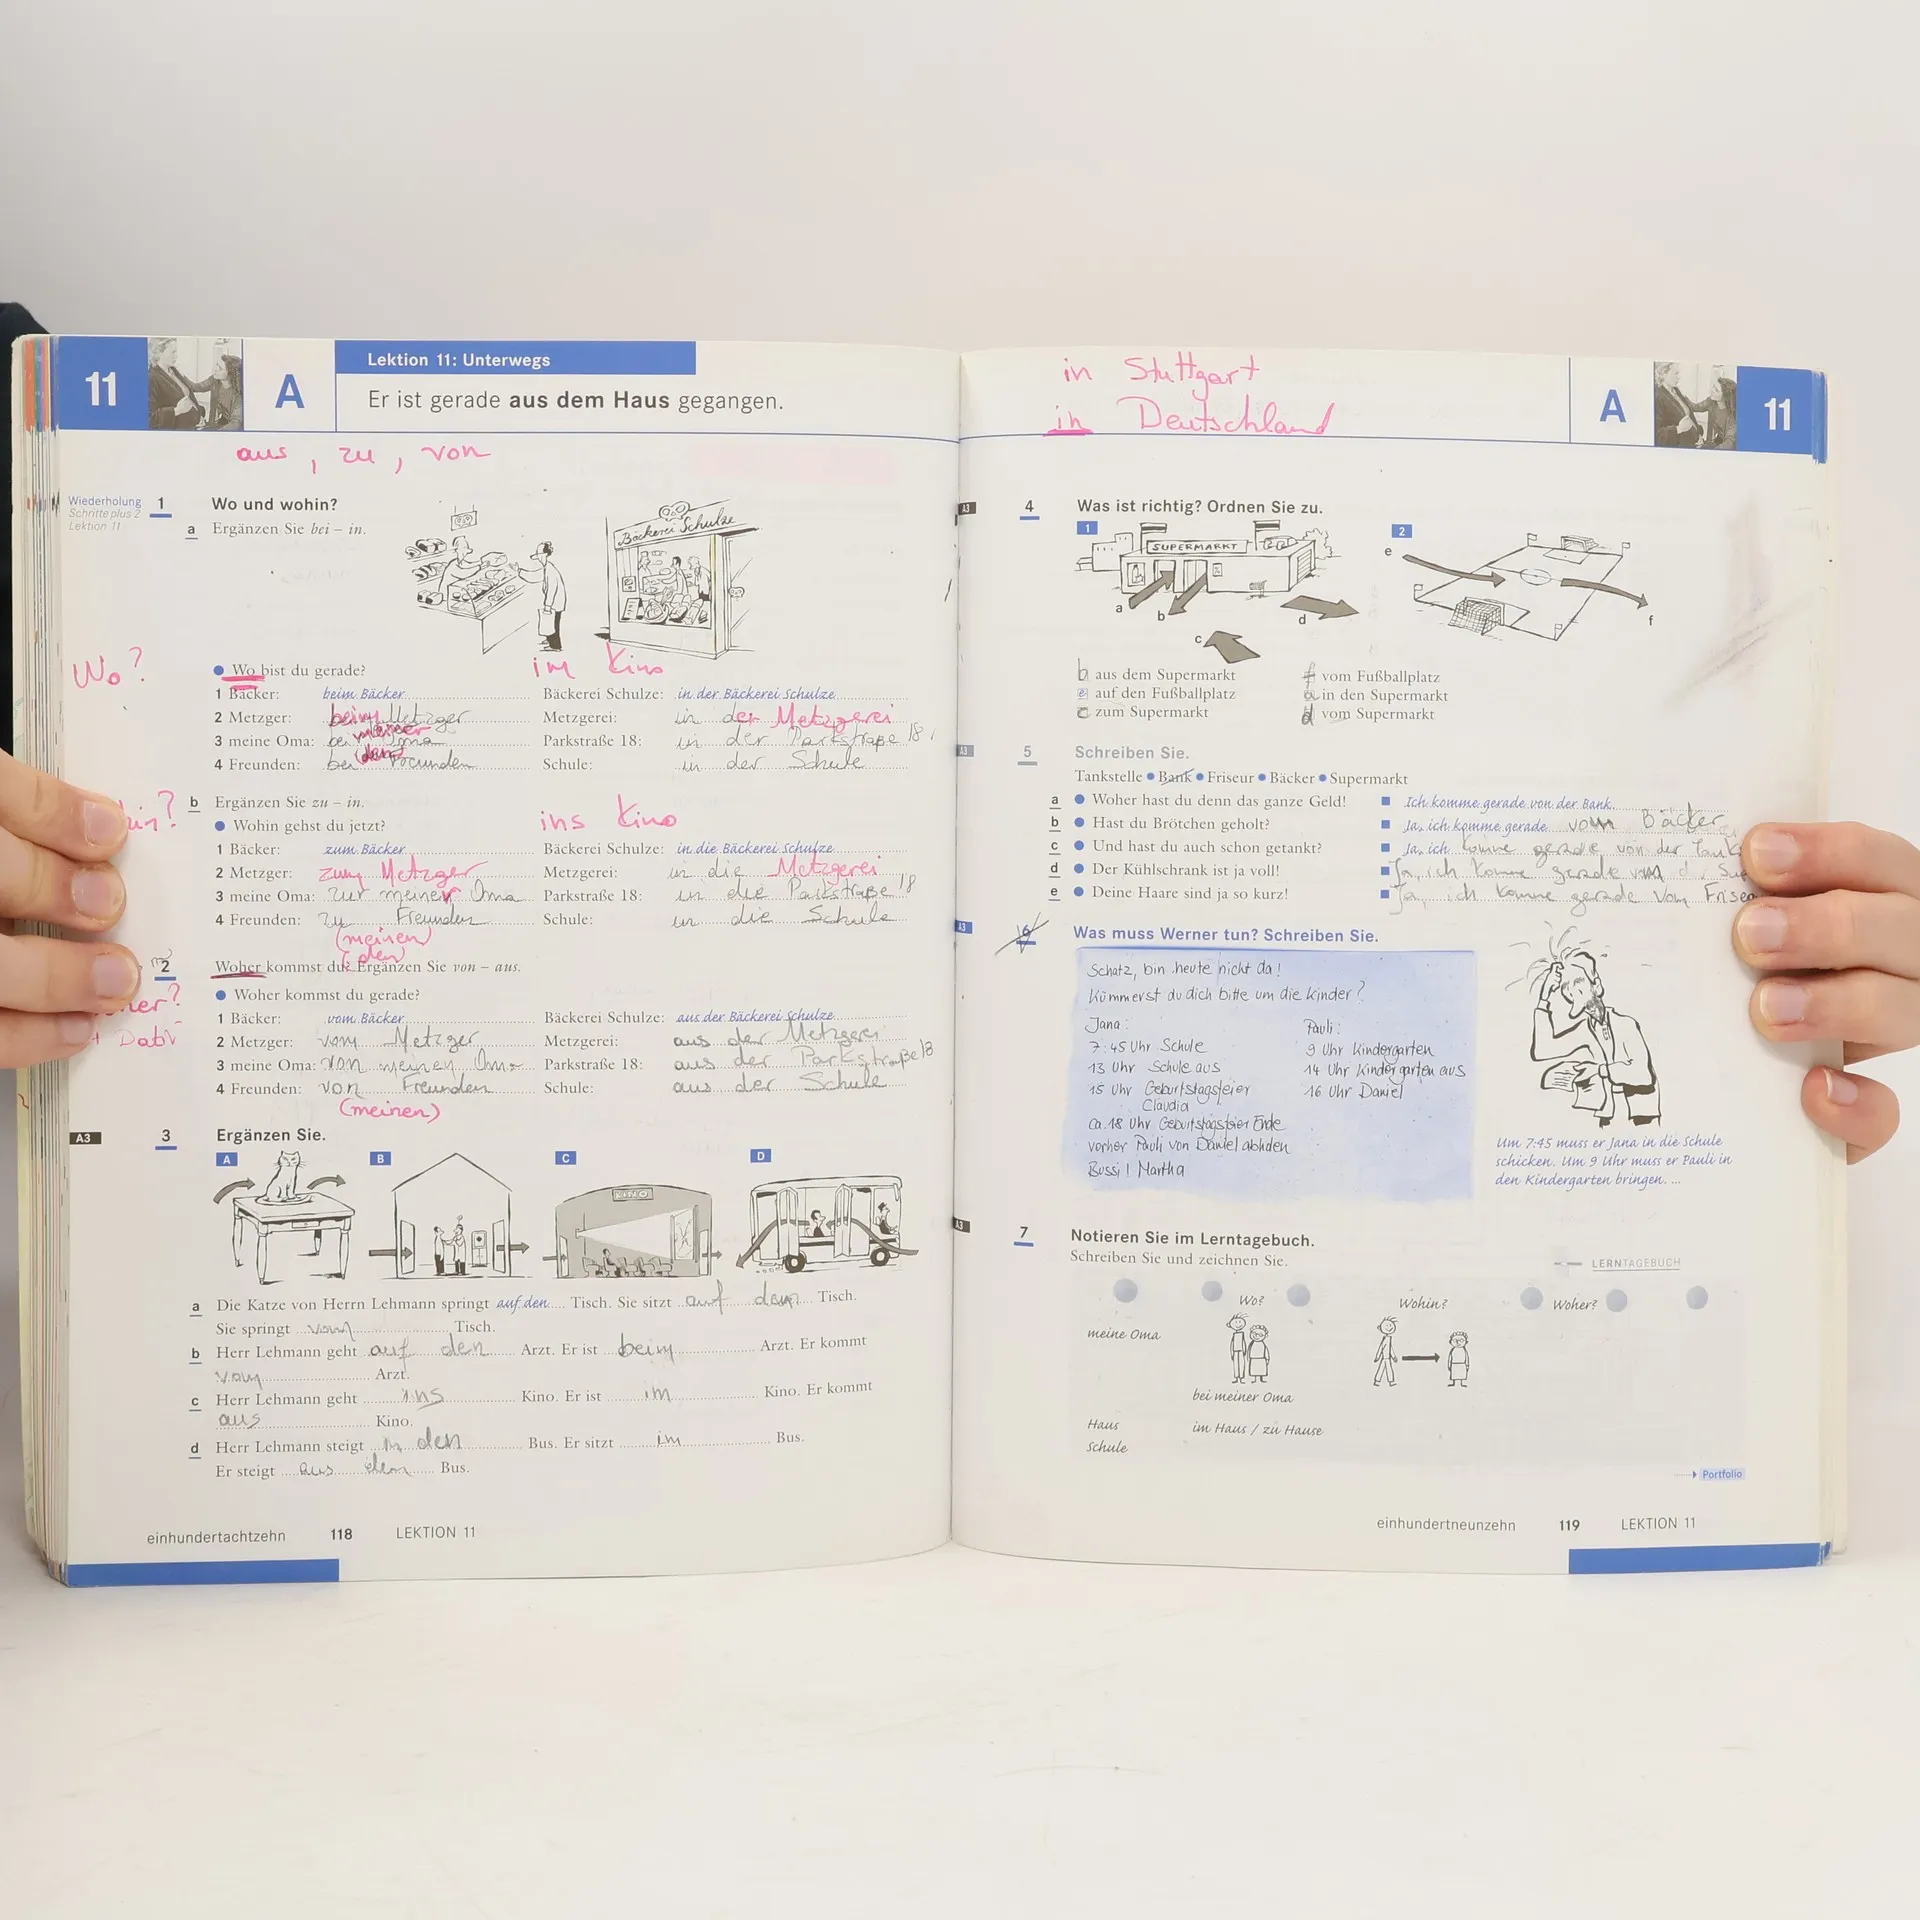 11
A
Lektion 11: Unterwegs
Er ist gerade aus dem Haus gegangen.
aus, zu, von
Wiederholung
Schritte plus 2
Lektion 11
1 Wo und wohin?
a Ergänzen Sie bei – in.
Bäckerei Schulze
Wo?
Wo bist du gerade?
im Kino
1 Bäcker: beim Bäcker Bäckerei Schulze: in der Bäckerei Schulze
2 Metzger: beim Metzger Metzgerei: in der Metzgerei
3 meine Oma: bei meiner Oma Parkstraße 18: in der Parkstraße 18
4 Freunden: bei (den) Freunden Schule: in der Schule
b Ergänzen Sie zu – in.
Wohin gehst du jetzt?
ins Kino
1 Bäcker: zum Bäcker Bäckerei Schulze: in die Bäckerei Schulze
2 Metzger: zum Metzger Metzgerei: in die Metzgerei
3 meine Oma: zur meiner Oma Parkstraße 18: in die Parkstraße 18
4 Freunden: zu Freunden Schule: in die Schule
(meinen)
(den)
2 Woher kommst du? Ergänzen Sie von – aus.
Woher kommst du gerade?
+ Dativ
1 Bäcker: vom Bäcker Bäckerei Schulze: aus der Bäckerei Schulze
2 Metzger: vom Metzger Metzgerei: aus der Metzgerei
3 meine Oma: von meiner Oma Parkstraße 18: aus der Parkstraße 18
4 Freunden: von Freunden Schule: aus der Schule
(meinen)
A3
3 Ergänzen Sie.
A B C D
KINO
a Die Katze von Herrn Lehmann springt auf den Tisch. Sie sitzt auf dem Tisch.
Sie springt vom Tisch.
b Herr Lehmann geht auf den Arzt. Er ist beim Arzt. Er kommt
vom Arzt.
c Herr Lehmann geht ins Kino. Er ist im Kino. Er kommt
aus Kino.
d Herr Lehmann steigt in den Bus. Er sitzt im Bus.
Er steigt aus dem Bus.
einhundertachtzehn 118 LEKTION 11
in Stuttgart
in Deutschland
A
11
A3
4 Was ist richtig? Ordnen Sie zu.
1 2
SUPERMARKT
a b c d e f
b aus dem Supermarkt f vom Fußballplatz
e auf den Fußballplatz a in den Supermarkt
c zum Supermarkt d vom Supermarkt
A3
5 Schreiben Sie.
Tankstelle • Bank • Friseur • Bäcker • Supermarkt
a Woher hast du denn das ganze Geld! Ich komme gerade von der Bank.
b Hast du Brötchen geholt? Ja, ich komme gerade vom Bäcker
c Und hast du auch schon getankt? Ja, ich komme gerade von der
d Der Kühlschrank ist ja voll! Ja, ich komme gerade vom
e Deine Haare sind ja so kurz! Ja, ich komme gerade vom
A3
6 Was muss Werner tun? Schreiben Sie.
Schatz, bin heute nicht da!
Kümmerst du dich bitte um die Kinder?
Jana: Pauli:
7:45 Uhr Schule 9 Uhr Kindergarten
13 Uhr Schule aus 14 Uhr Kindergarten aus
15 Uhr Geburtstagsfeier 16 Uhr Daniel
Claudia
ca. 18 Uhr Geburtstagsfeier Ende
vorher Pauli von Daniel abholen
Bussi! Martha
Um 7:45 muss er Jana in die Schule
schicken. Um 9 Uhr muss er Pauli in
den Kindergarten bringen. ...
A3
7 Notieren Sie im Lerntagebuch.
Schreiben Sie und zeichnen Sie.
LERNTAGEBUCH
Wo? Wohin? Woher?
meine Oma
bei meiner Oma
Haus im Haus / zu Hause
Schule
Portfolio
einhundertneunzehn 119 LEKTION 11